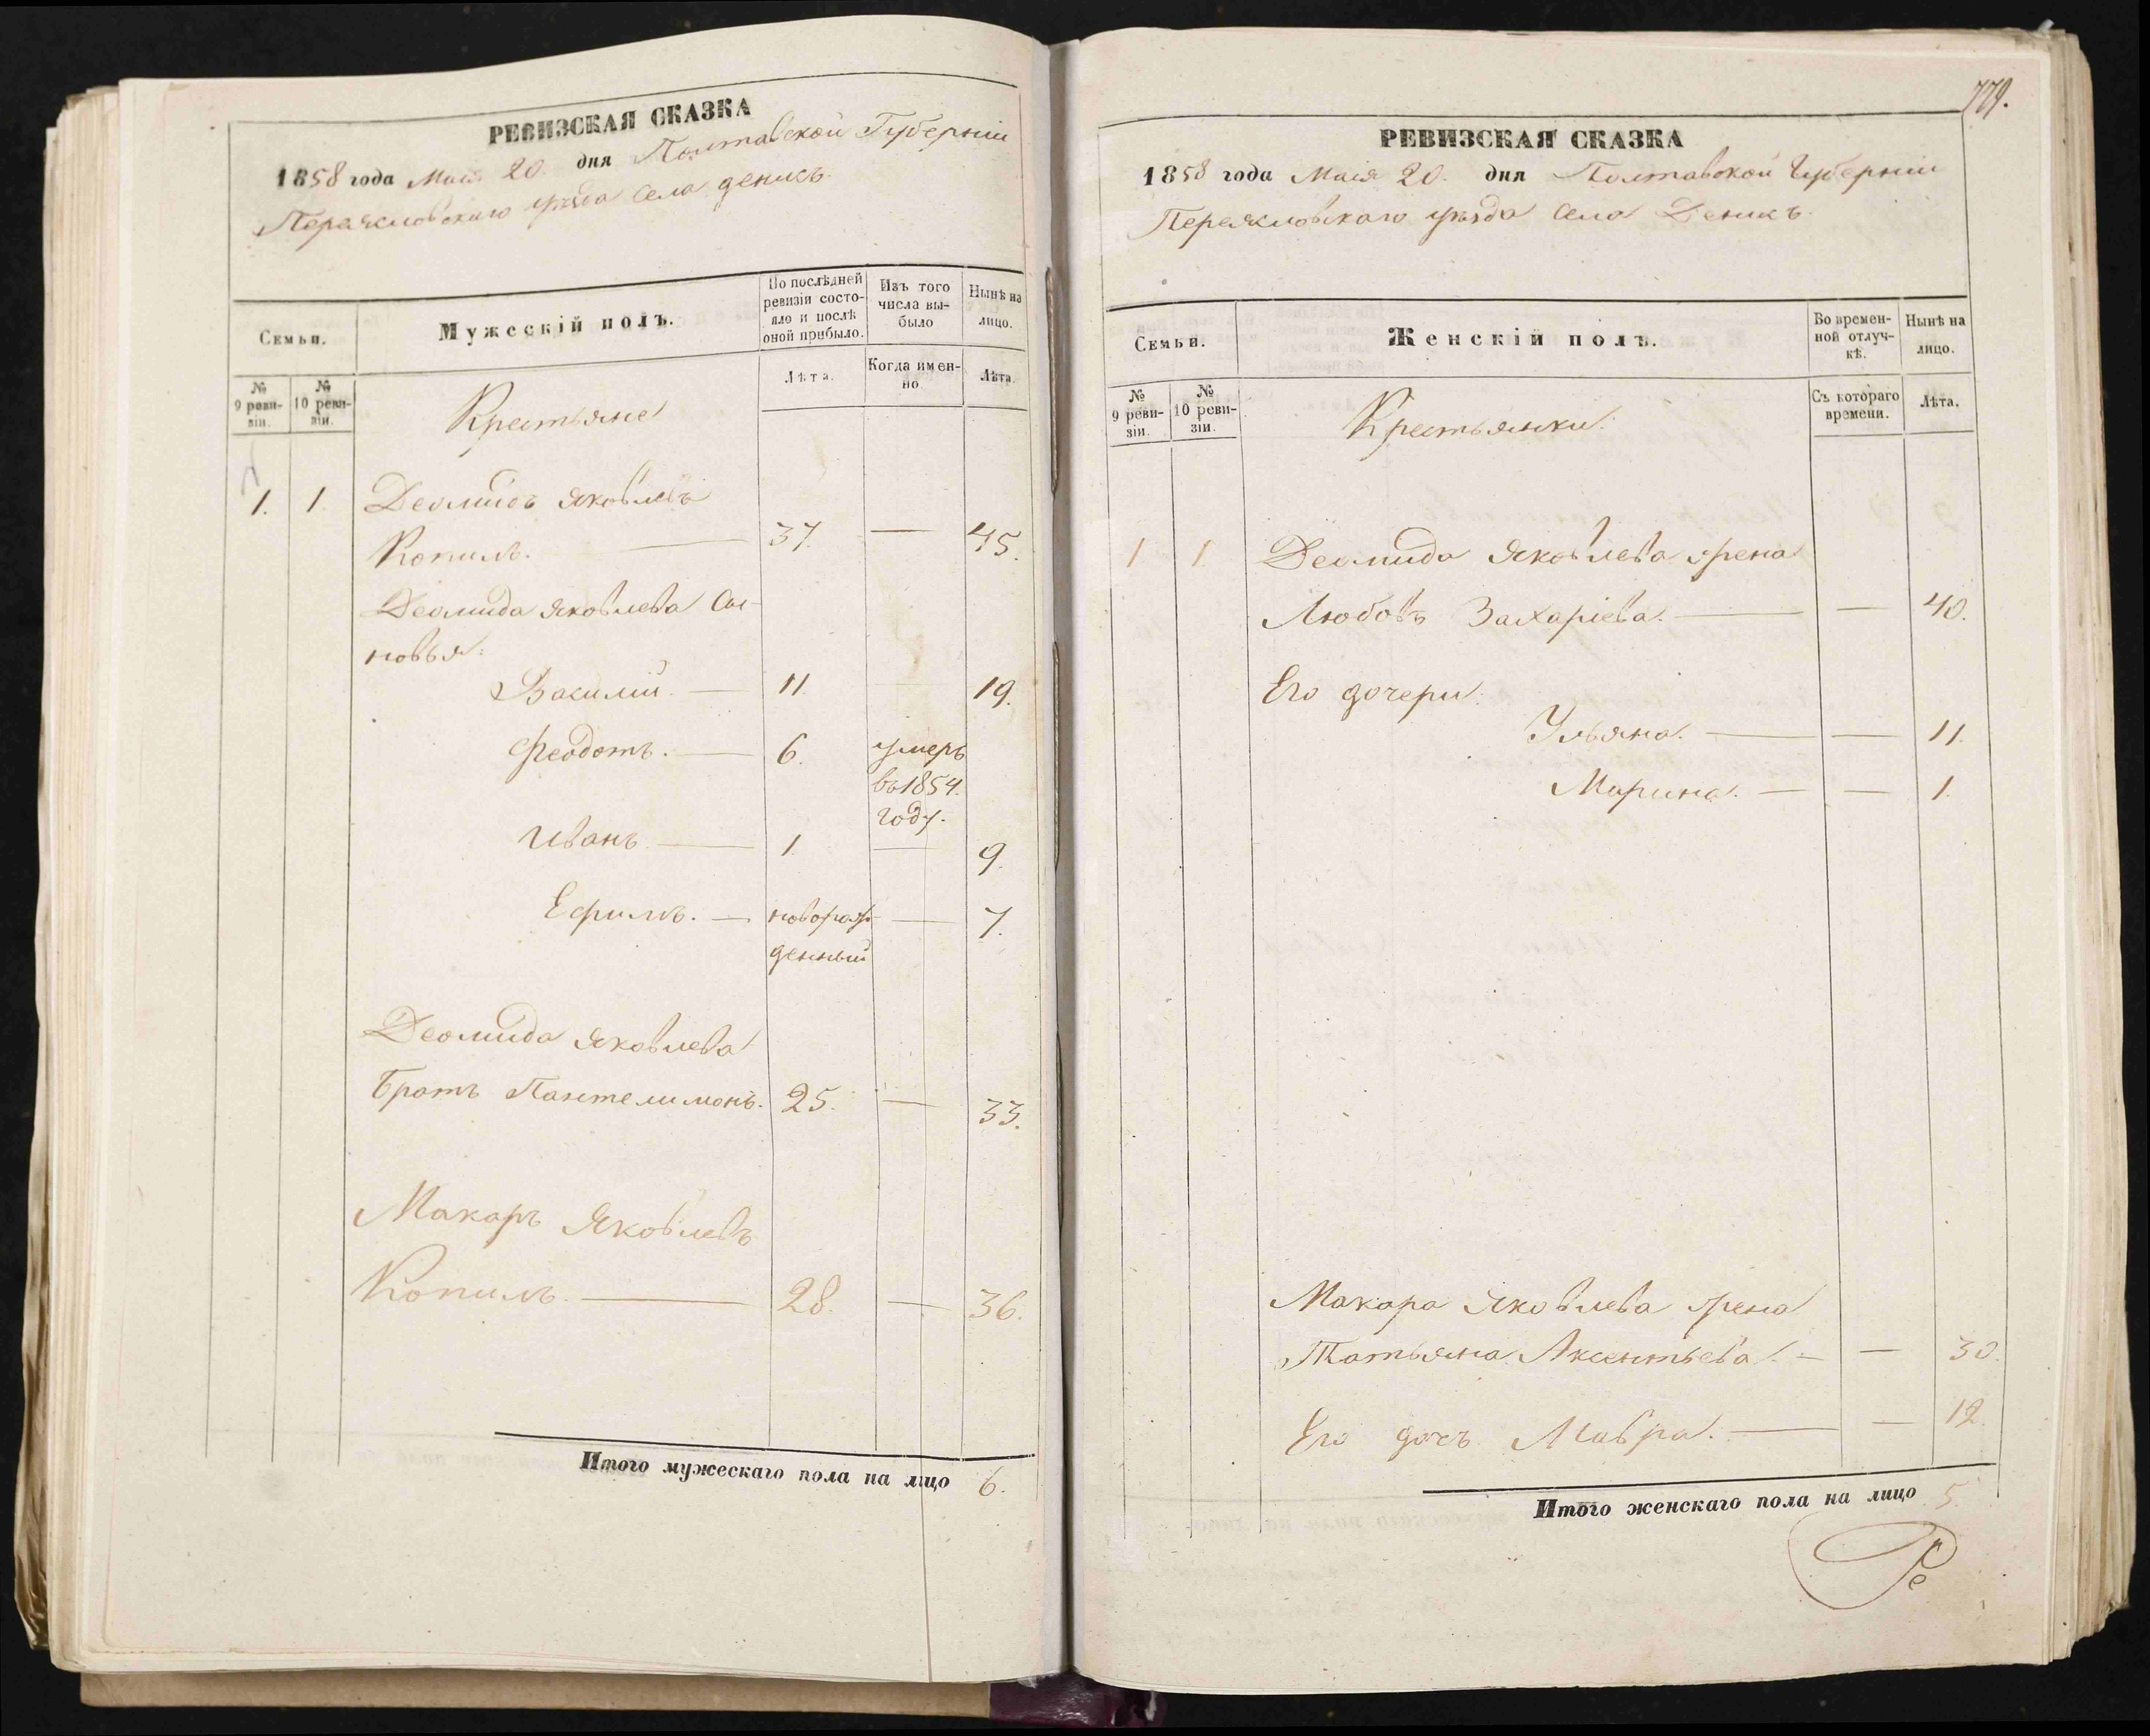 РЕВИЗСКАЯ СКАЗКА
1858 года Маія 20. дня Полтавской Губерніи
Переясловскаго уѣзда села денисъ.
Семьи.
Мужескій полъ.
По послѣдней ревизіи состояло и послѣ оной прибыло.
Изъ того числа выбыло
Нынѣ на лицо.
№ 9 ревизіи.
№ 10 ревизіи.
Лѣта.
Когда именно
Лѣта.
Крестьяне
1. 1 Деомидъ Яковлевъ
Копилъ. — 37. — 45.
Деомида Яковлева Сы-
новья:
Василий. — 11. 19.
Феодотъ. — 6. умеръ
въ 1854.
году.
Иванъ — 1. — 9.
Ефимъ. — новорож- — 7.
денный
Деомида Яковлева
Братъ Пантелимонъ. 25. — 33.
Макаръ Яковлевъ
Копилъ. — 28. — 36.
Итого мужескаго пола на лицо 6.
779.
РЕВИЗСКАЯ СКАЗКА
1858 года Маія 20. дня Полтавской Губерніи
Переясловскаго уѣзда села Денисъ.
Семьи.
Женскій полъ.
Во временной отлучкѣ.
Нынѣ на лицо.
№ 9 ревизіи.
№ 10 ревизіи.
Съ котораго времени.
Лѣта.
Крестьянки.
1 1. Деомида Яковлева жена
Любовь Захаріева. — — 40.
Его дочери:
Ульяна. — — 11.
Марина. — — 1.
Макара Яковлева жена
Татьяна Аксентьева. — — 30.
Его дочь Мавра. — — 12.
Итого женскаго пола на лицо 5.